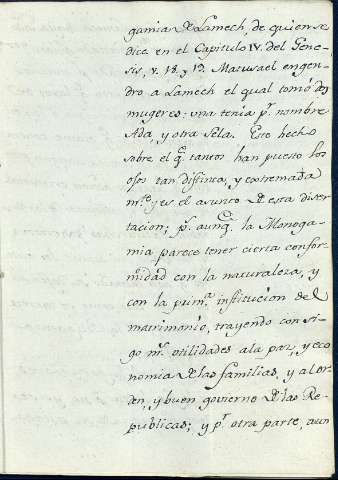 gamias de Lamech, de quien se
dice en el Capitulo IV. del Gene-
sis, v. 18. y 19. Matusael engen-
dro a Lamech el qual tomó dos
mugeres: una tenia pr. nombre
Ada, y otra Sela. Este hecho
sobre el q. tantos han puesto los
ojos tan distinta, y extremada
mte. es el asunto de esta diser-
tacion; ps. aunq. la Monoga-
mia parece tener cierta confor-
midad con la naturaleza, y
con la prima. institucion del
matrimonio, trayendo consi-
go ms. utilidades a la paz, y eco
nomia de las familias, y al or-
den, y buen govierno de las Re-
publicas; y pr. otra parte, aun